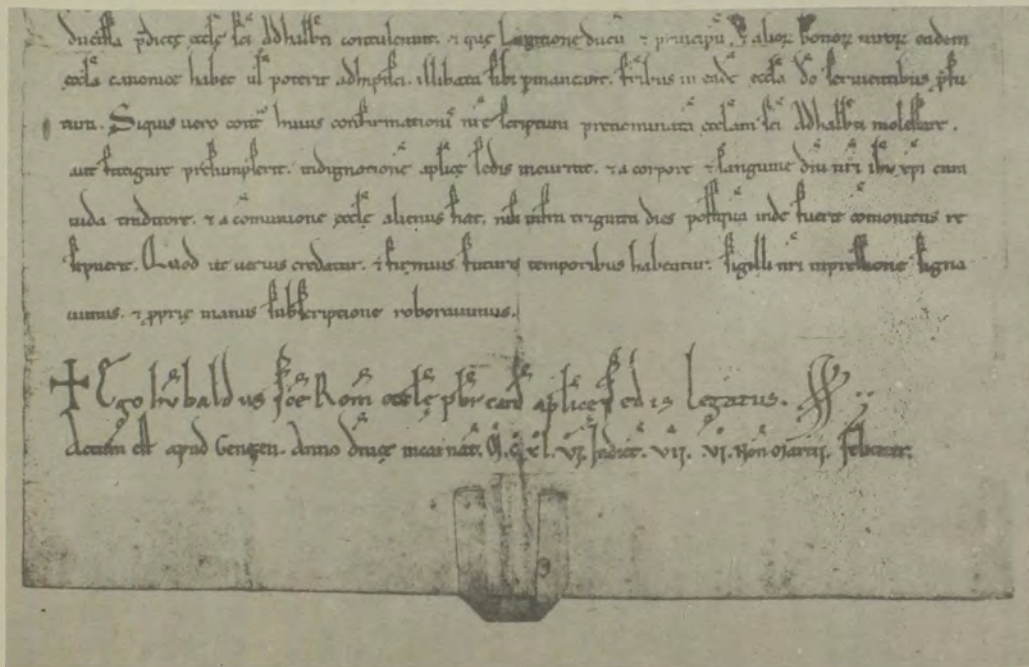 ducissa p̄dictę ęccłę sc̄i Adhalb̄ti contulerunt. & quę Largitione ducū & principū. & alioꝝ bonoꝝ uiroꝝ eadem
ęccła canonice habet ul̄ poterit adhipisci. illibata sibi ꝑmaneant. fr̄ibus in eadē ęccła dō seruientibus ꝓfu
tura. Siquis uero cont̄ huius confirmationis nr̄ę scriptum prenominatā ęccłam sc̄i Adhalb̄ti molestare.
aut fatigare presumpserit. indignationē aplicę sedis incurrat. & a corpore & sanguine dn̄i nr̄i ihu xp̄i cum
iuda traditore. & a cōmunione ęccłę alienus fiat. nisi infra triginta dies postquā inde fuerit cōmonitus re
sipuerit. Quod ut uerius credatur. & firmius futuris temporibus habeatur. sigilli nr̄i inpressione signa
uimus. & ꝓprię manus subscriptione roborauimus.
✝ Ego hvbaldus sc̄ę Rom̄ ęccłę pb̄r card̄ aplicę sedis legatus.
Actum est apud Anno dn̄icę incarnat̄. M. c. xl. vi. Indict̄. vii. vi. Non̄ Martij. feliciter.